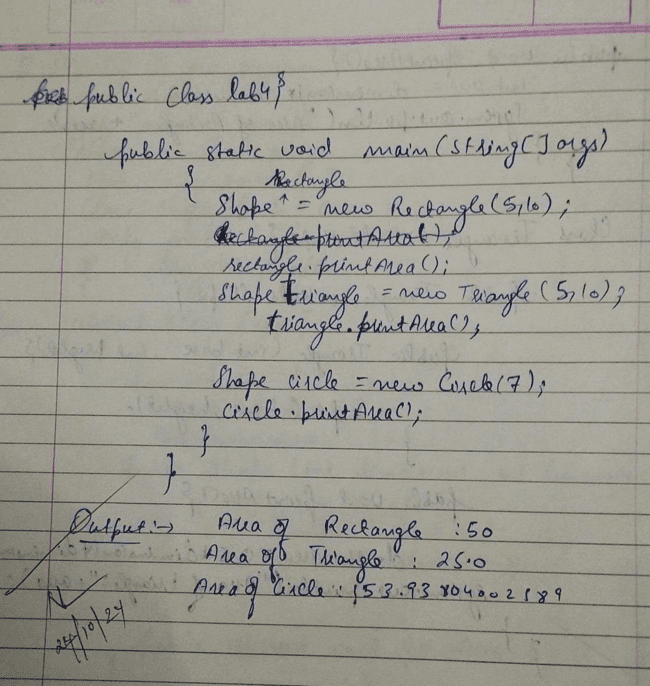 public class lab4{
public static void main(String[] args)
{
Rectangle
Shape ↑ = new Rectangle(5,10);
Rectangle.printArea();
rectangle.printArea();
Shape triangle = new Triangle (5,10);
triangle.printArea();
Shape circle = new Circle(7);
circle.printArea();
}
}
Output:→ Area of Rectangle : 50
Area of Triangle : 25.0
Area of Circle : 153.93804002589
24/10/24